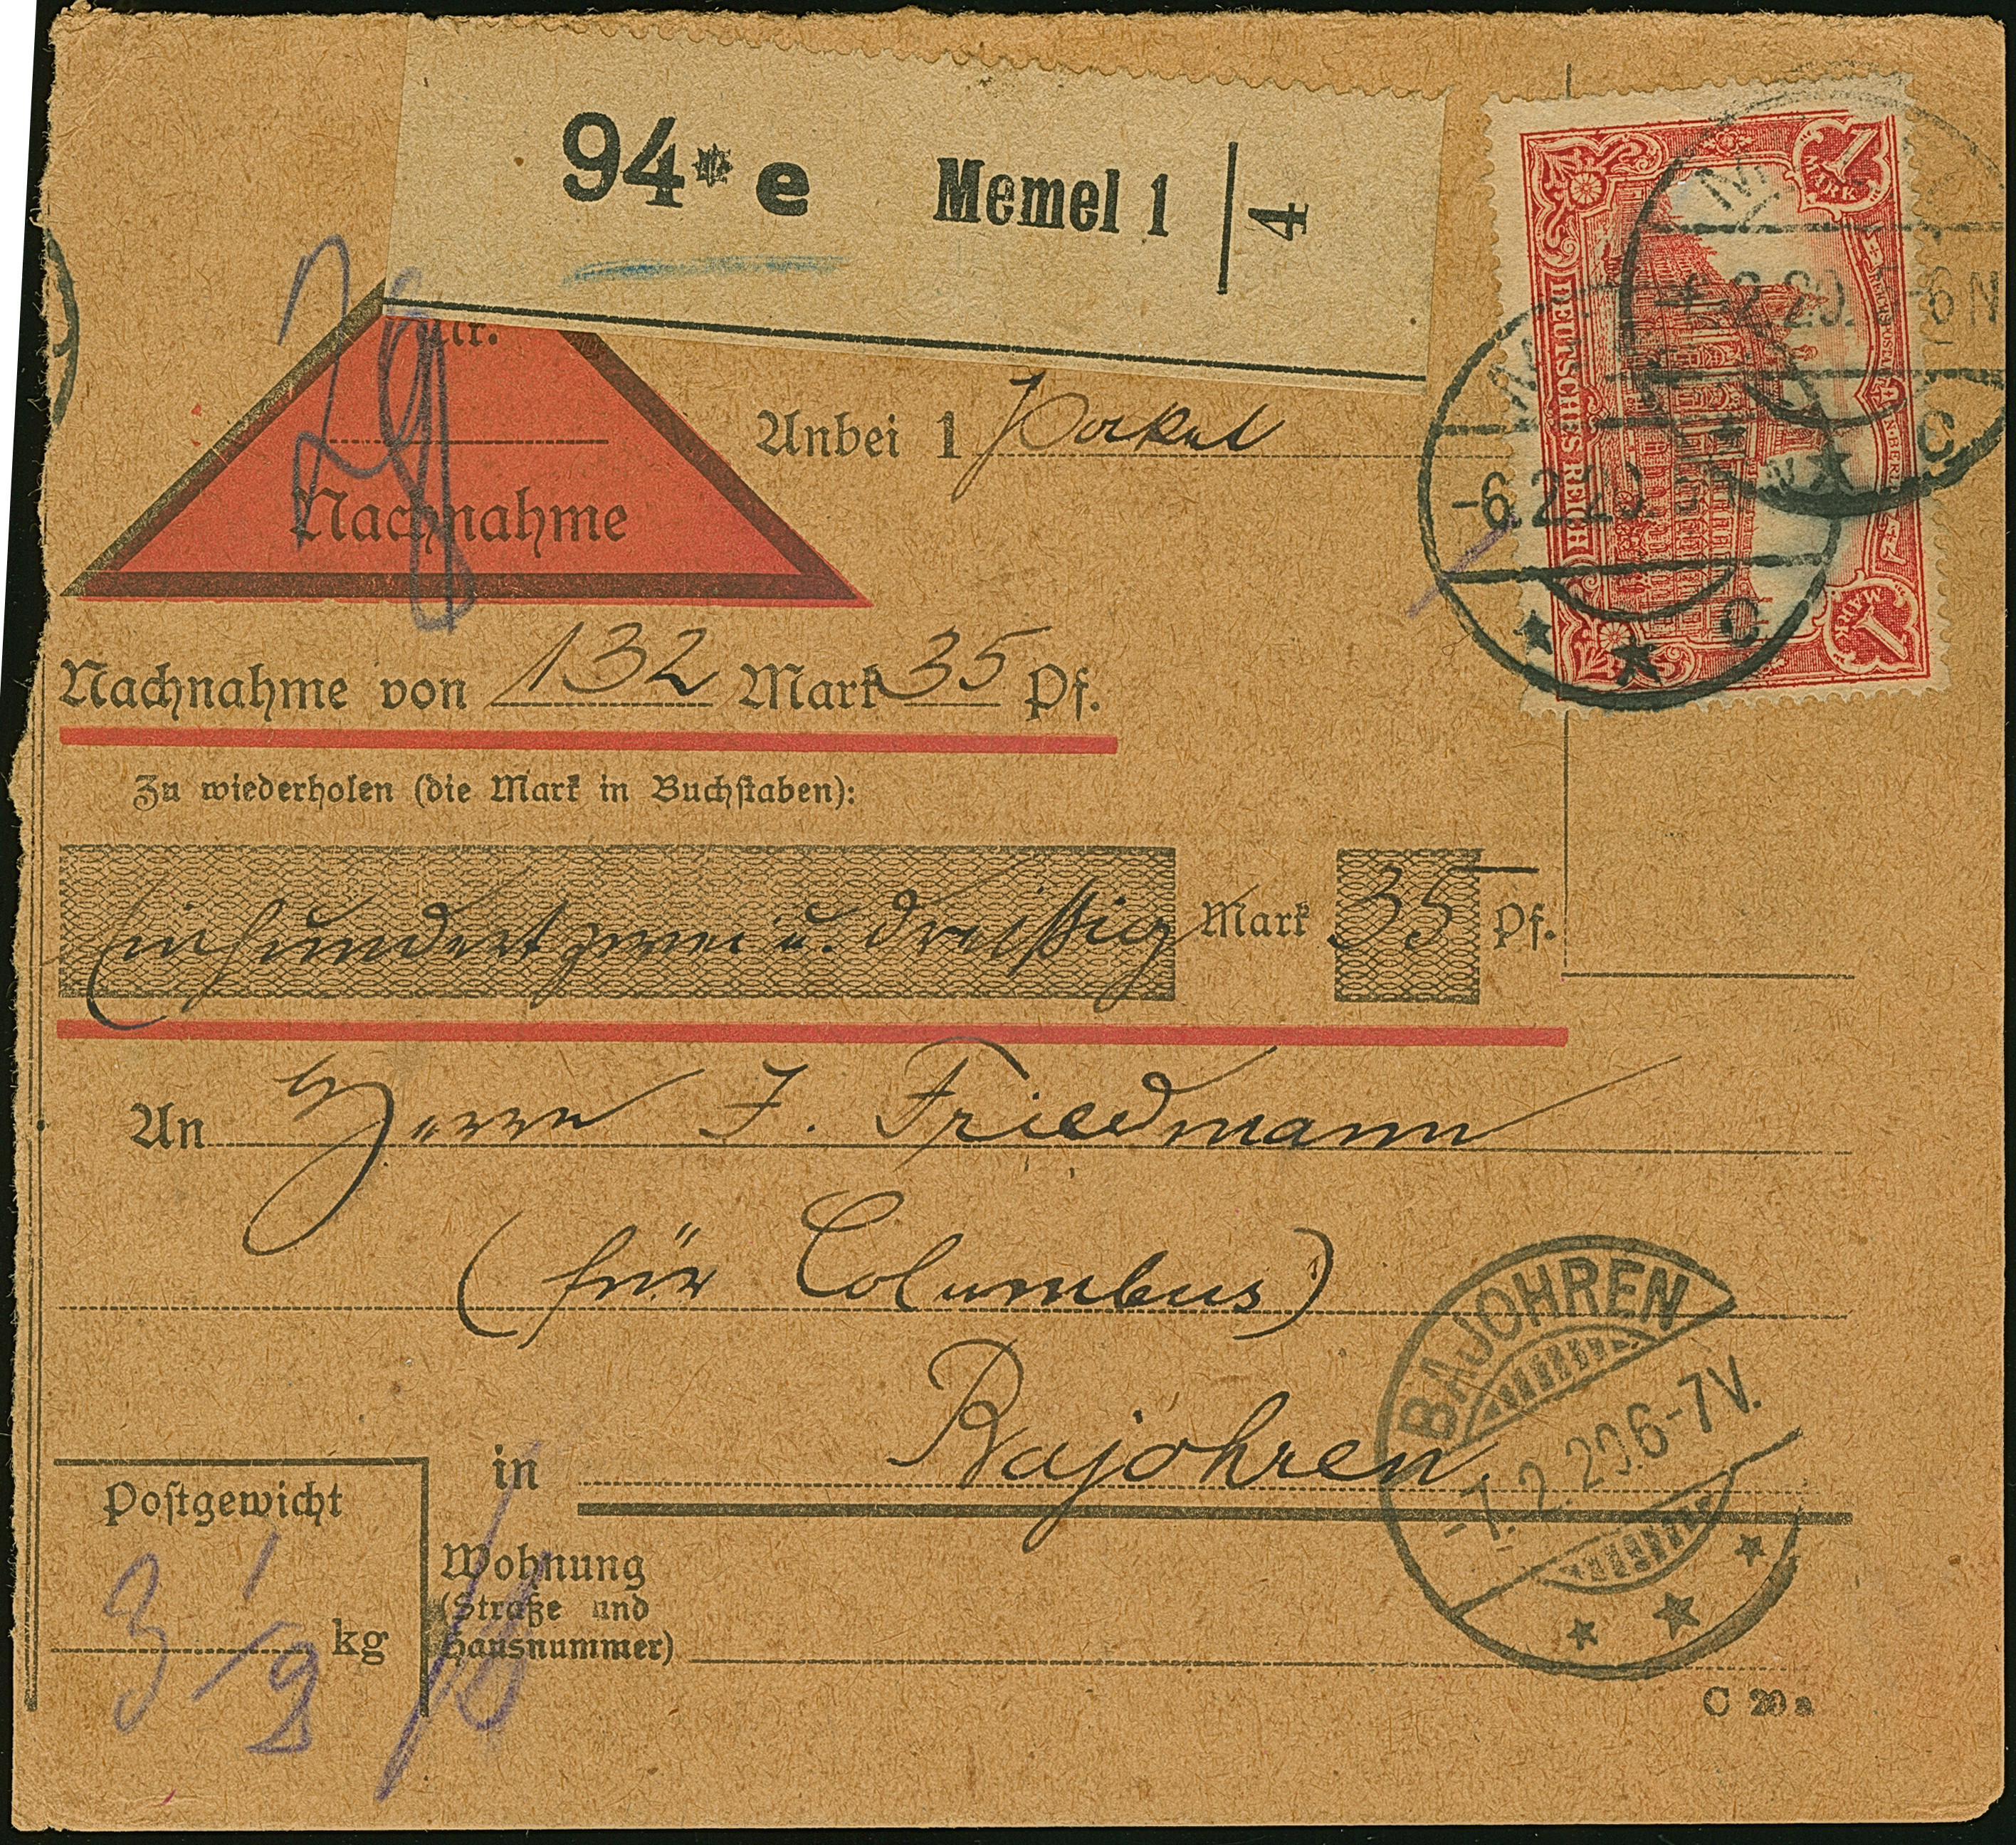 94* e Memel 1 4
1 MARK
DEUTSCHES REICH
1 MARK
-6.2.20. 5-6N
C
-6.2.20.
C
Nr.
Nachnahme
Anbei 1 Packet
Nachnahme von 132 Mark 35 Pf.
Zu wiederholen (die Mark in Buchstaben):
Einhundertzwei u. dreißig Mark 35 Pf.
An Herrn J. Friedmann
(für Columbus)
in Bajohren
BAJOHREN
-7.2.20.6-7V.
Postgewicht
3 1/2 kg
Wohnung
(Straße und
Hausnummer)
C 20a